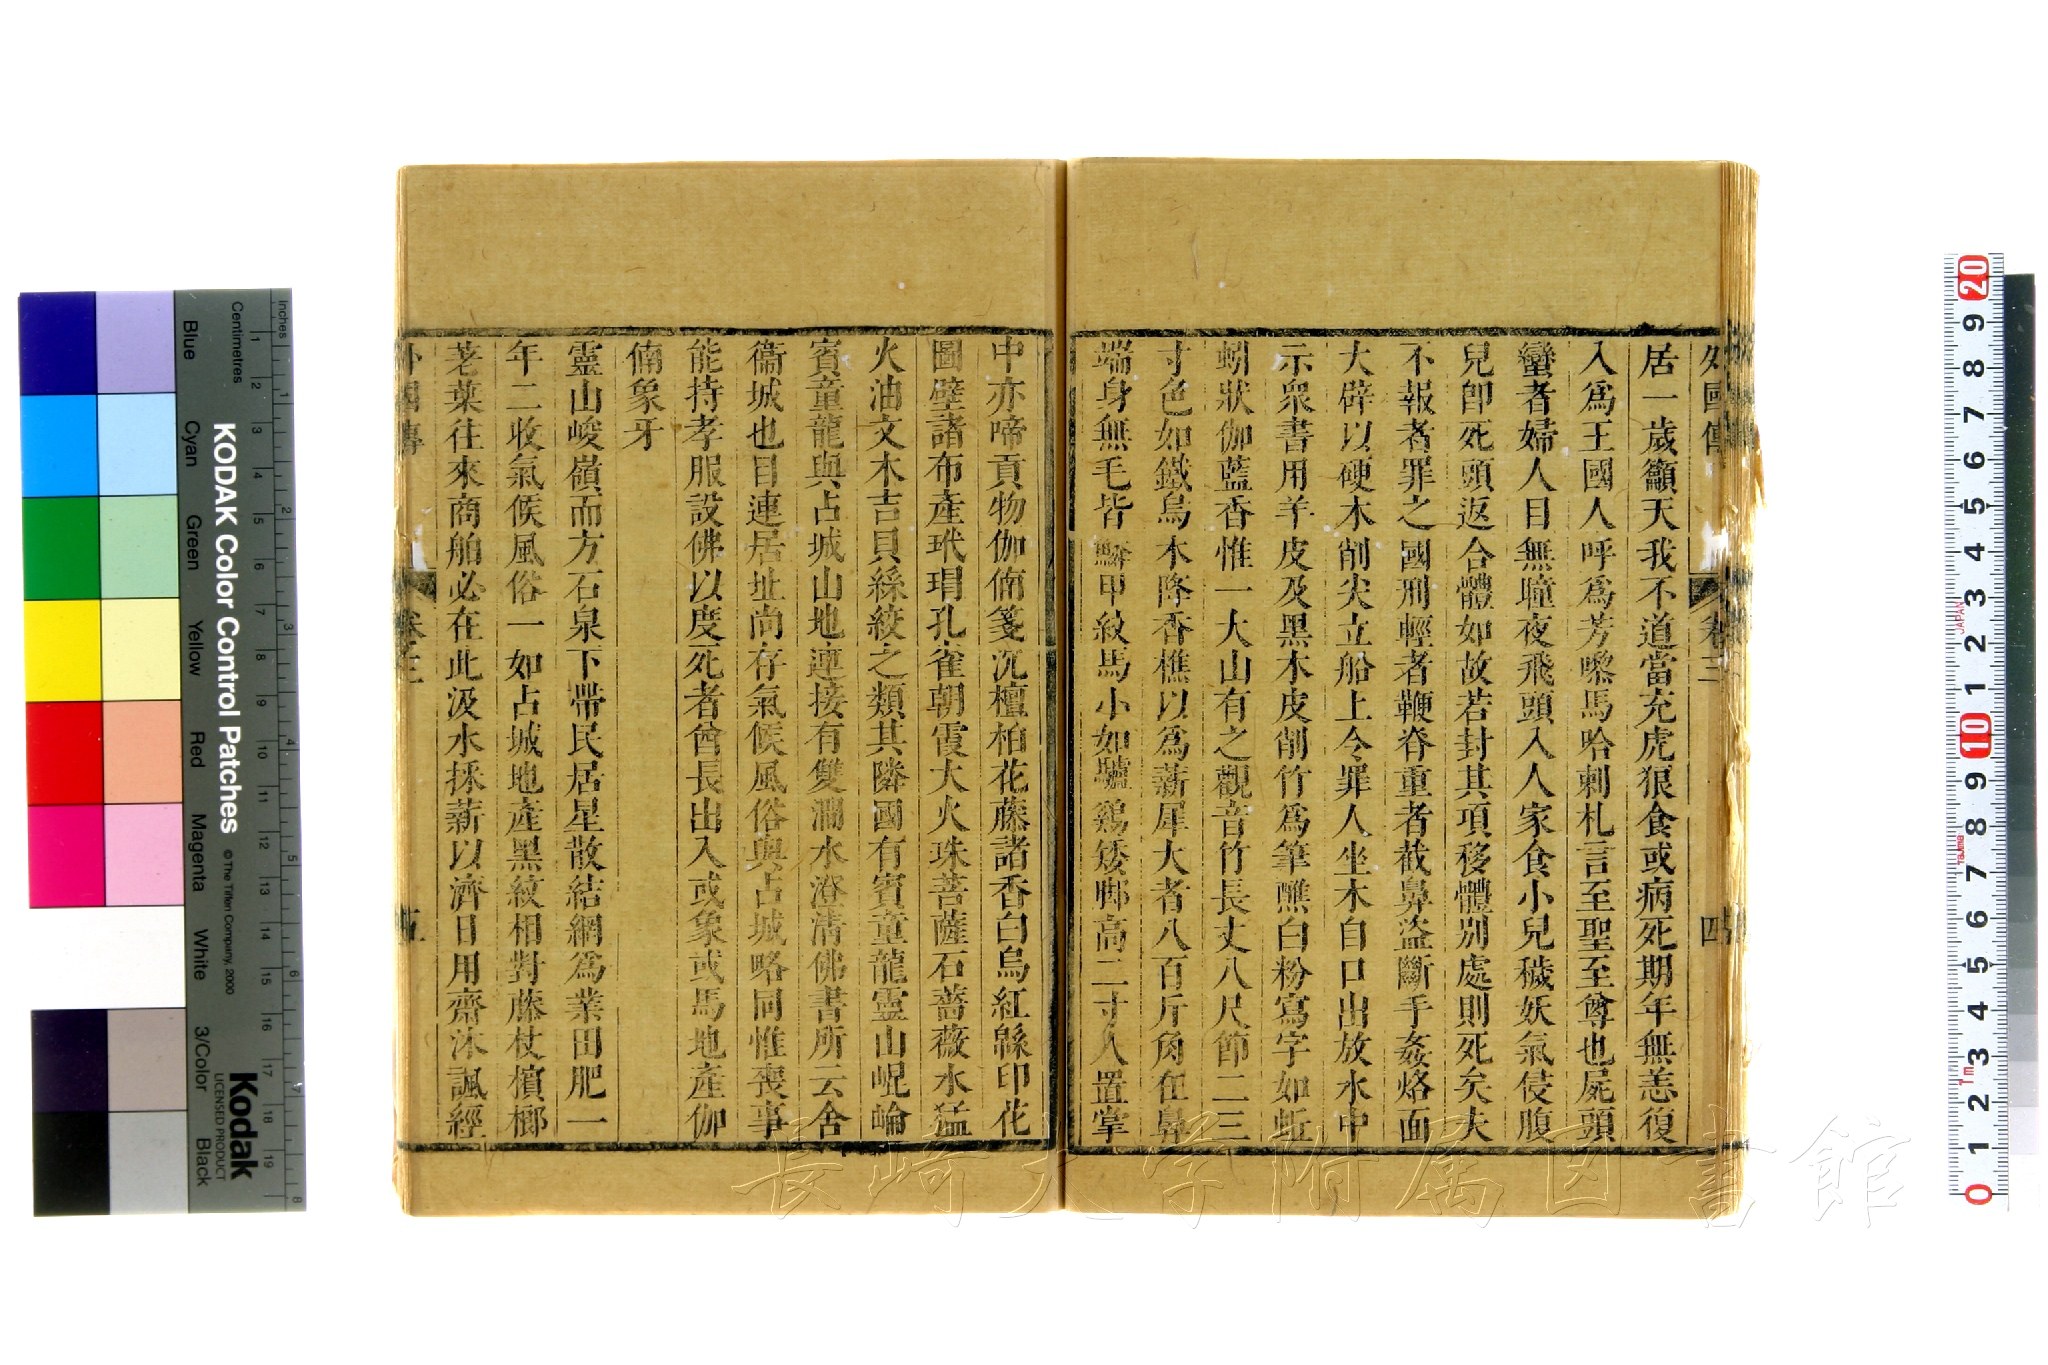 外國傳 卷三 四
居一歲籲天我不道當充虎狼食或病死期年無恙復
入爲王國人呼爲芳嚟馬哈剌札言至聖至尊也屍頭
蠻者婦人目無瞳夜飛頭入人家食小兒穢妖氣侵腹
兒卽死頭返合體如故若封其項移體別處則死矣夫
不報者罪之國刑輕者鞭脊重者截鼻盜斷手姦烙面
大辟以硬木削尖立船上令罪人坐木自口出放水中
示衆書用羊皮及黑木皮削竹爲筆蘸白粉寫字如蚯
蚓狀伽藍香惟一大山有之觀音竹長丈八尺節二三
寸色如鐵烏木降香樵以爲薪犀大者八百斤角在鼻
端身無毛皆鱗甲紋馬小如驢鷄矮脚高二寸人置掌
中亦啼貢物伽㑲箋沉檀柏花藤諸香白烏紅緜印花
圖壁諸布產玳瑁孔雀朝霞大火珠菩薩石薔薇水猛
火油文木吉貝絲絞之類其隣國有賓童龍靈山崐崘
賓童龍與占城山地連接有雙澗水澄清佛書所云舍
衞城也目連居址尚存氣候風俗與占城略同惟喪事
能持孝服設佛以度死者酋長出入或象或馬地產伽
㑲象牙
靈山峻嶺而方石泉下帶民居星散結網爲業田肥一
年二收氣候風俗一如占城地產黑紋相對藤杖檳榔
荖葉往來商舶必在此汲水採薪以濟日用齋沐諷經
外國傳 卷三 五
KODAK Color Control Patches
© The Tiffen Company, 2000
Kodak
LICENSED PRODUCT
Inches
Centimetres
Blue
Cyan
Green
Yellow
Red
Magenta
White
3/Color
Black
長崎大学附属図書館
JAPAN
Tajima
1m